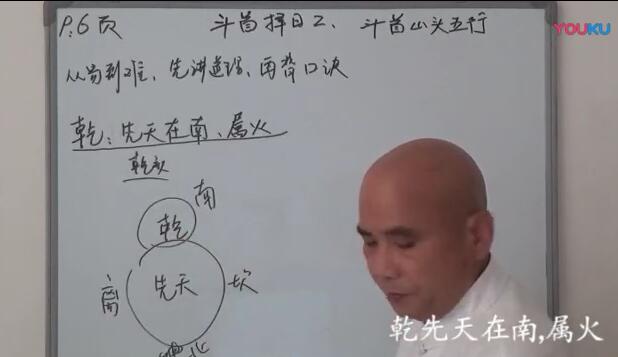 P.6页 斗首择日2、斗首山头五行
YOUKU
从易到难、先讲道理、再背口诀
乾:先天在南、属火
乾亥
南
乾
离 先天 坎
北
乾先天在南,属火